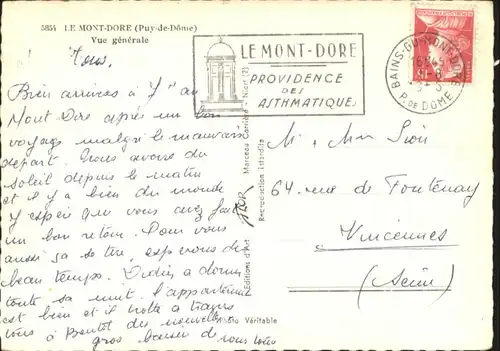 5854 LE MONT-DORE (Puy-de-Dôme)
Vue générale
LE MONT-DORE
PROVIDENCE
DES
ASTHMATIQUES
BAINS-DU-MONT-DORE
P. DE DOME
Tous,
Bien arrivés à au
Mont Dore après un bon
voyage malgré le mauvais
départ. Nous avons du
soleil depuis le matin
et il y a bien du monde
J'espère que vous avez fait
un bon retour. Pour vous
aussi sa se tire, espérons du
beau temps. Didier a dormi
toute sa nuit. l'appartement
est bien et il trotte à travers
des nouvelles
gros baisers de nous tous
Éditions d'Art
Marceau Carrière - Niort
Reproduction interdite
Photo Véritable
M. Mme
64 rue de Fontenay
Vincennes
(Seine)